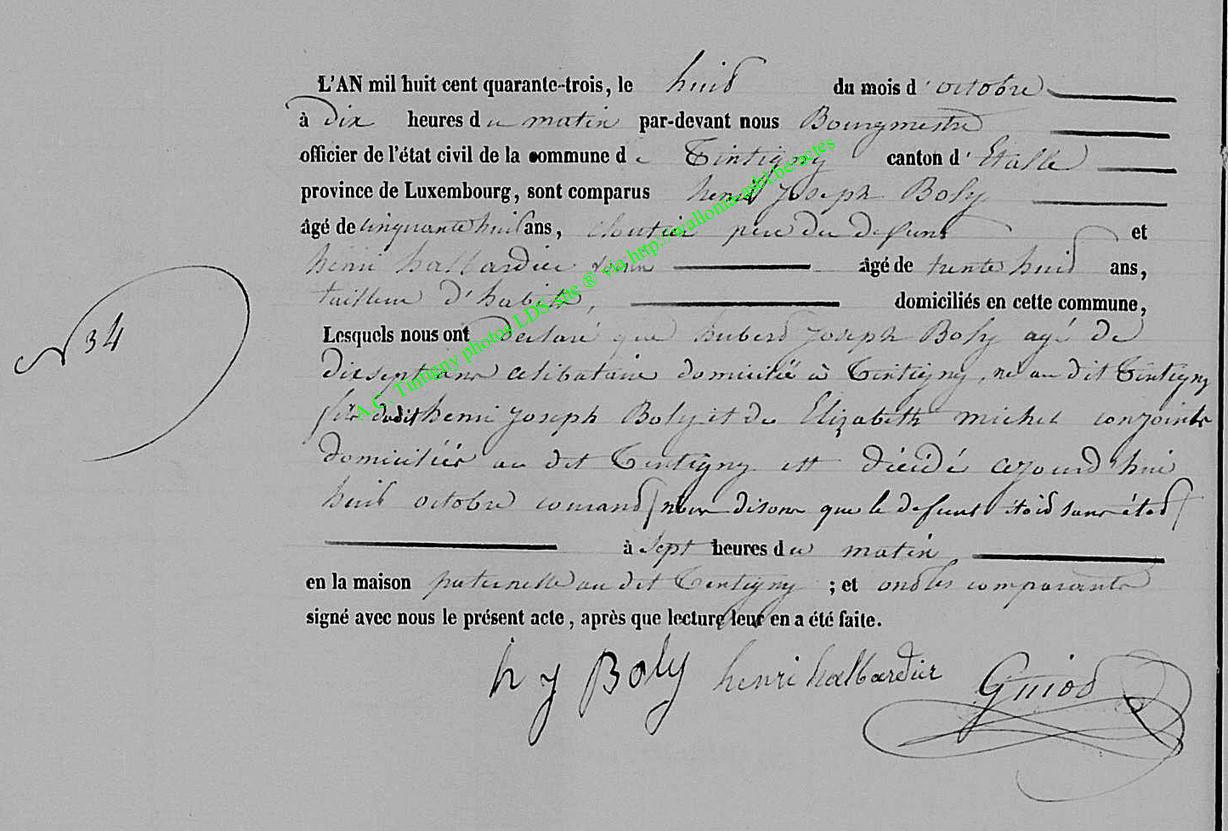 L'AN mil huit cent quarante-trois, le huit du mois d'octobre
à dix heures du matin par-devant nous Bourgmestre
officier de l'état civil de la commune de Tintigny canton d'Etalle
province de Luxembourg, sont comparus henri Joseph Boly
âgé de cinquante huit ans, cloutier père du defunt et
henri hallbardier voisin âgé de trente huit ans,
tailleur d'habits, domiciliés en cette commune,
N 34
Lesquels nous ont declaré que hubert Joseph Boly agé de
dixsept ans celibataire domicilié à Tintigny, né au dit Tintigny
fils dudit henri Joseph Boly et de Elizabeth michel conjoints
domiciliés au dit Tintigny est décédé cejourd'hui
huit octobre courant (nous disons que le defunt étoit sans état)
à sept heures du matin
en la maison paternelle au dit Tintigny ; et ont les comparants
signé avec nous le présent acte, après que lecture leur en a été faite.
h J Boly henri hallbardier Guiot
A.C. Tintigny photos LDS site ® via http://wallonia-asbl.be/actes